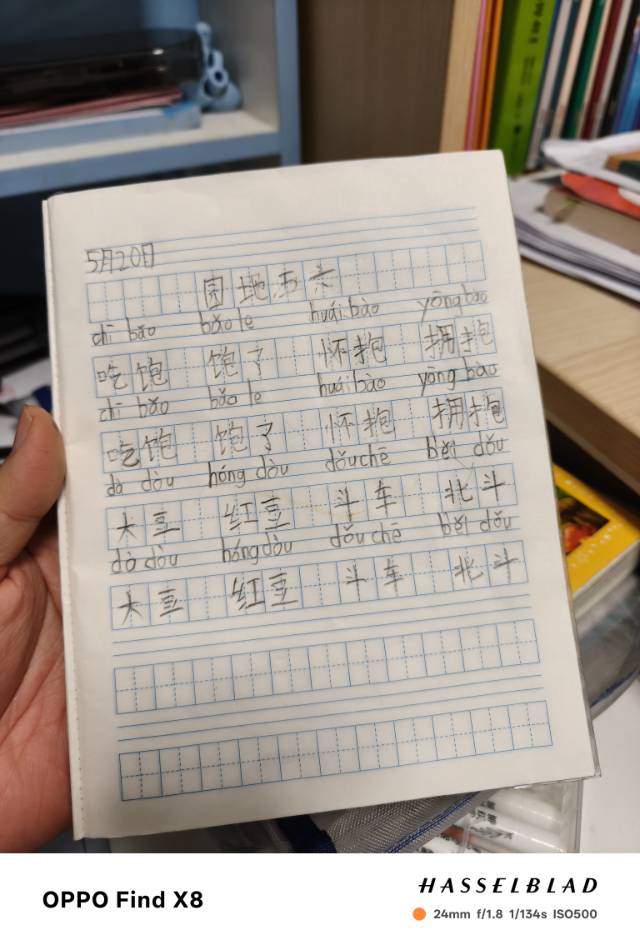 5月20日
园地七
chī bǎo bǎo le huái bào yōng bào
吃饱 饱了 怀抱 拥抱
chī bǎo bǎo le huái bào yōng bào
吃饱 饱了 怀抱 拥抱
dà dòu hóng dòu dǒu chē běi dǒu
大豆 红豆 斗车 北斗
dà dòu hóng dòu dǒu chē běi dǒu
大豆 红豆 斗车 北斗
OPPO Find X8
HASSELBLAD
24mm f/1.8 1/134s ISO500